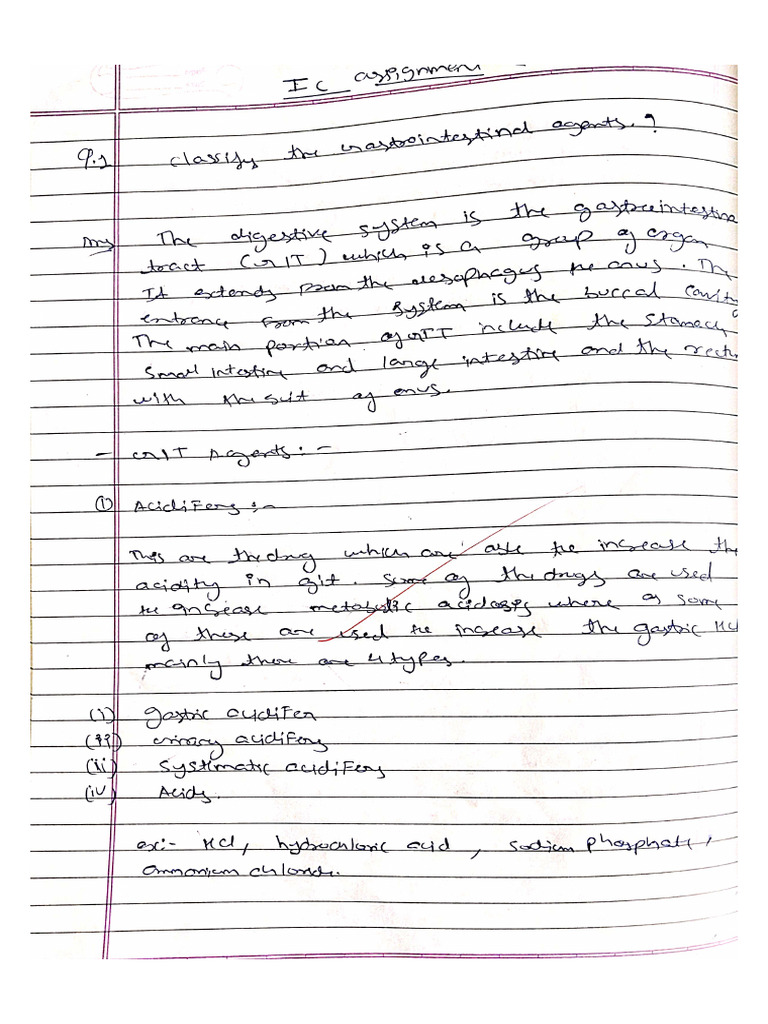 IC assignment
Q.1 Classify the Gastrointestinal agents.?
Ans The digestive system is the gastrointestina
tract (GIT) which is a group of organ
It extends from the oesophagus to anus. The
entrance from the system is the buccal cavity
The main portion of GIT include the Stomach
Small intestine and large intestine and the rectu
with the of anus.
- GIT Agents:-
① Acidifers:-
This are the drug which are the increase the
acidity in git. Some of the drugs are used
to increase metabolic acidosis where as some
of these are used to increase the gastric HCl
mainly there are 4 types.
(i) gastric acidifer
(ii) urinary acidifers
(iii) Systimatic acidifers
(iv) Acids.
ex:- HCl, hydrochloric acid, sodium phosphate,
ammonium chloride.